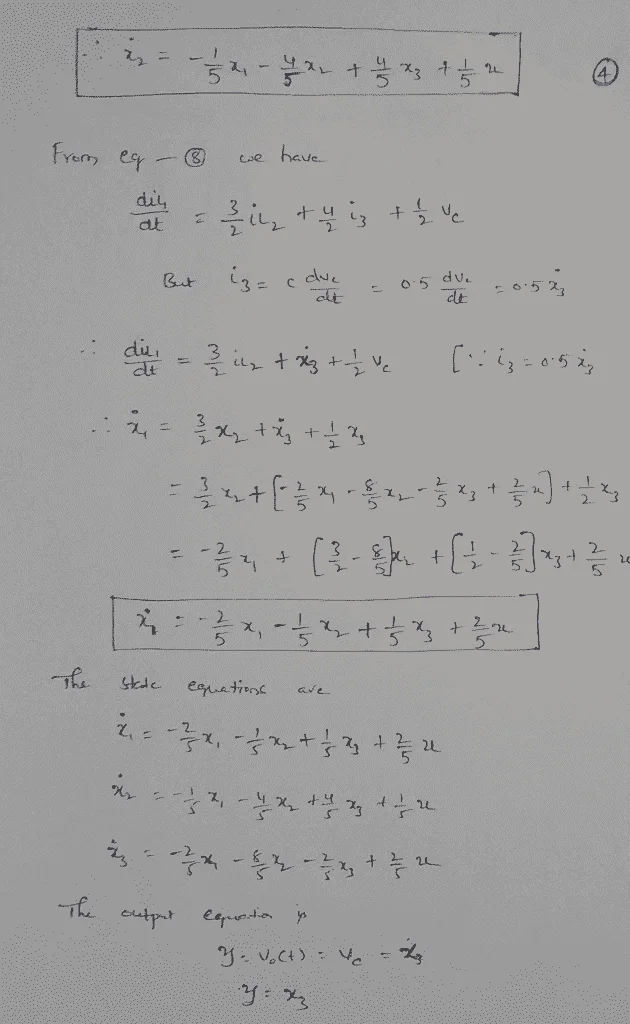 ∴ ẋ₂ = -1/5 x₁ - 4/5 x₂ + 4/5 x₃ + 1/5 u
④
From eq - ⑧ we have
di₁/dt = 3/2 i_{L2} + 4/2 i₃ + 1/2 v_c
But i₃ = c dv_c/dt = 0.5 dv_c/dt = 0.5 ẋ₃
∴ di_{L1}/dt = 3/2 i_{L2} + ẋ₃ + 1/2 v_c [∵ i₃ = 0.5 ẋ₃
∴ ẋ₁ = 3/2 x₂ + ẋ₃ + 1/2 x₃
= 3/2 x₂ + [-2/5 x₁ - 8/5 x₂ - 2/5 x₃ + 2/5 u] + 1/2 x₃
= -2/5 x₁ + [3/2 - 8/5] x₂ + [1/2 - 2/5] x₃ + 2/5 u
ẋ₁ = -2/5 x₁ - 1/5 x₂ + 1/5 x₃ + 2/5 u
The state equations are
ẋ₁ = -2/5 x₁ - 1/5 x₂ + 1/5 x₃ + 2/5 u
ẋ₂ = -1/5 x₁ - 4/5 x₂ + 4/5 x₃ + 1/5 u
ẋ₃ = -2/5 x₁ - 8/5 x₂ - 2/5 x₃ + 2/5 u
The output equation is
y = v₀(t) = v_c = x₃
y = x₃